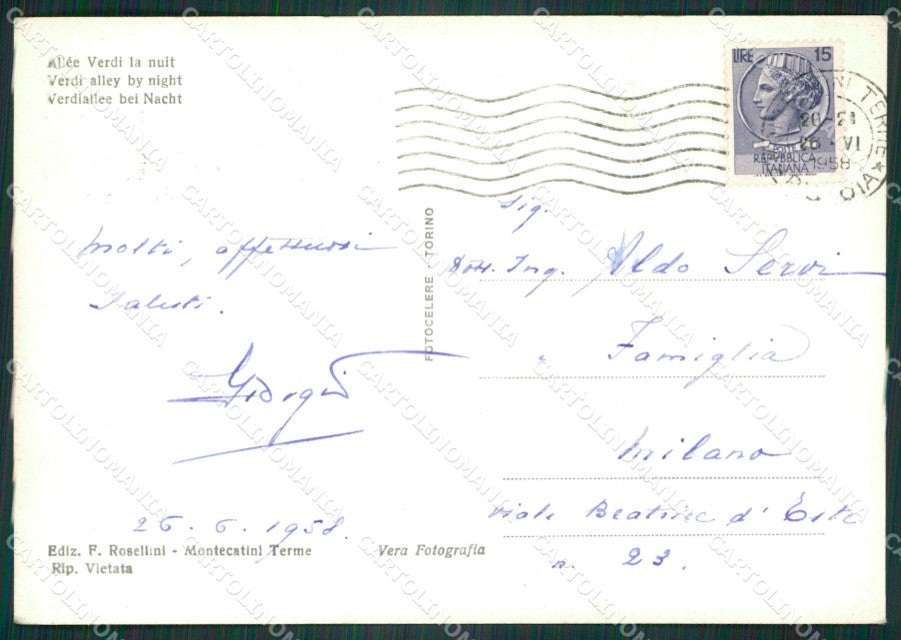 Allée Verdi la nuit
Verdi alley by night
Verdiallee bei Nacht
LIRE 15
REPVBBLICA
ITALIANA
TERME
20-21
26 - VI
1958
Molti, affettuosi
Saluti.
Giorgio
26. 6. 1958.
Ediz. F. Rosellini - Montecatini Terme
Rip. Vietata
Vera Fotografia
FOTOCELERE - TORINO
Sig.
Dott. Ing. Aldo Servi
" Famiglia
Milano
Viale Beatrice d' Este
n. 23.
CARTOLINOMANIA